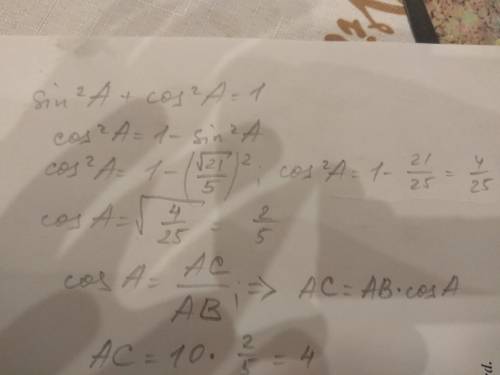 sin²A + cos²A = 1
cos²A = 1 - sin²A
cos²A = 1 - (√21/5)²; cos²A = 1 - 21/25 = 4/25
cos A = √(4/25) = 2/5
cos A = AC/AB; ⇒ AC = AB·cosA
AC = 10 · 2/5 = 4